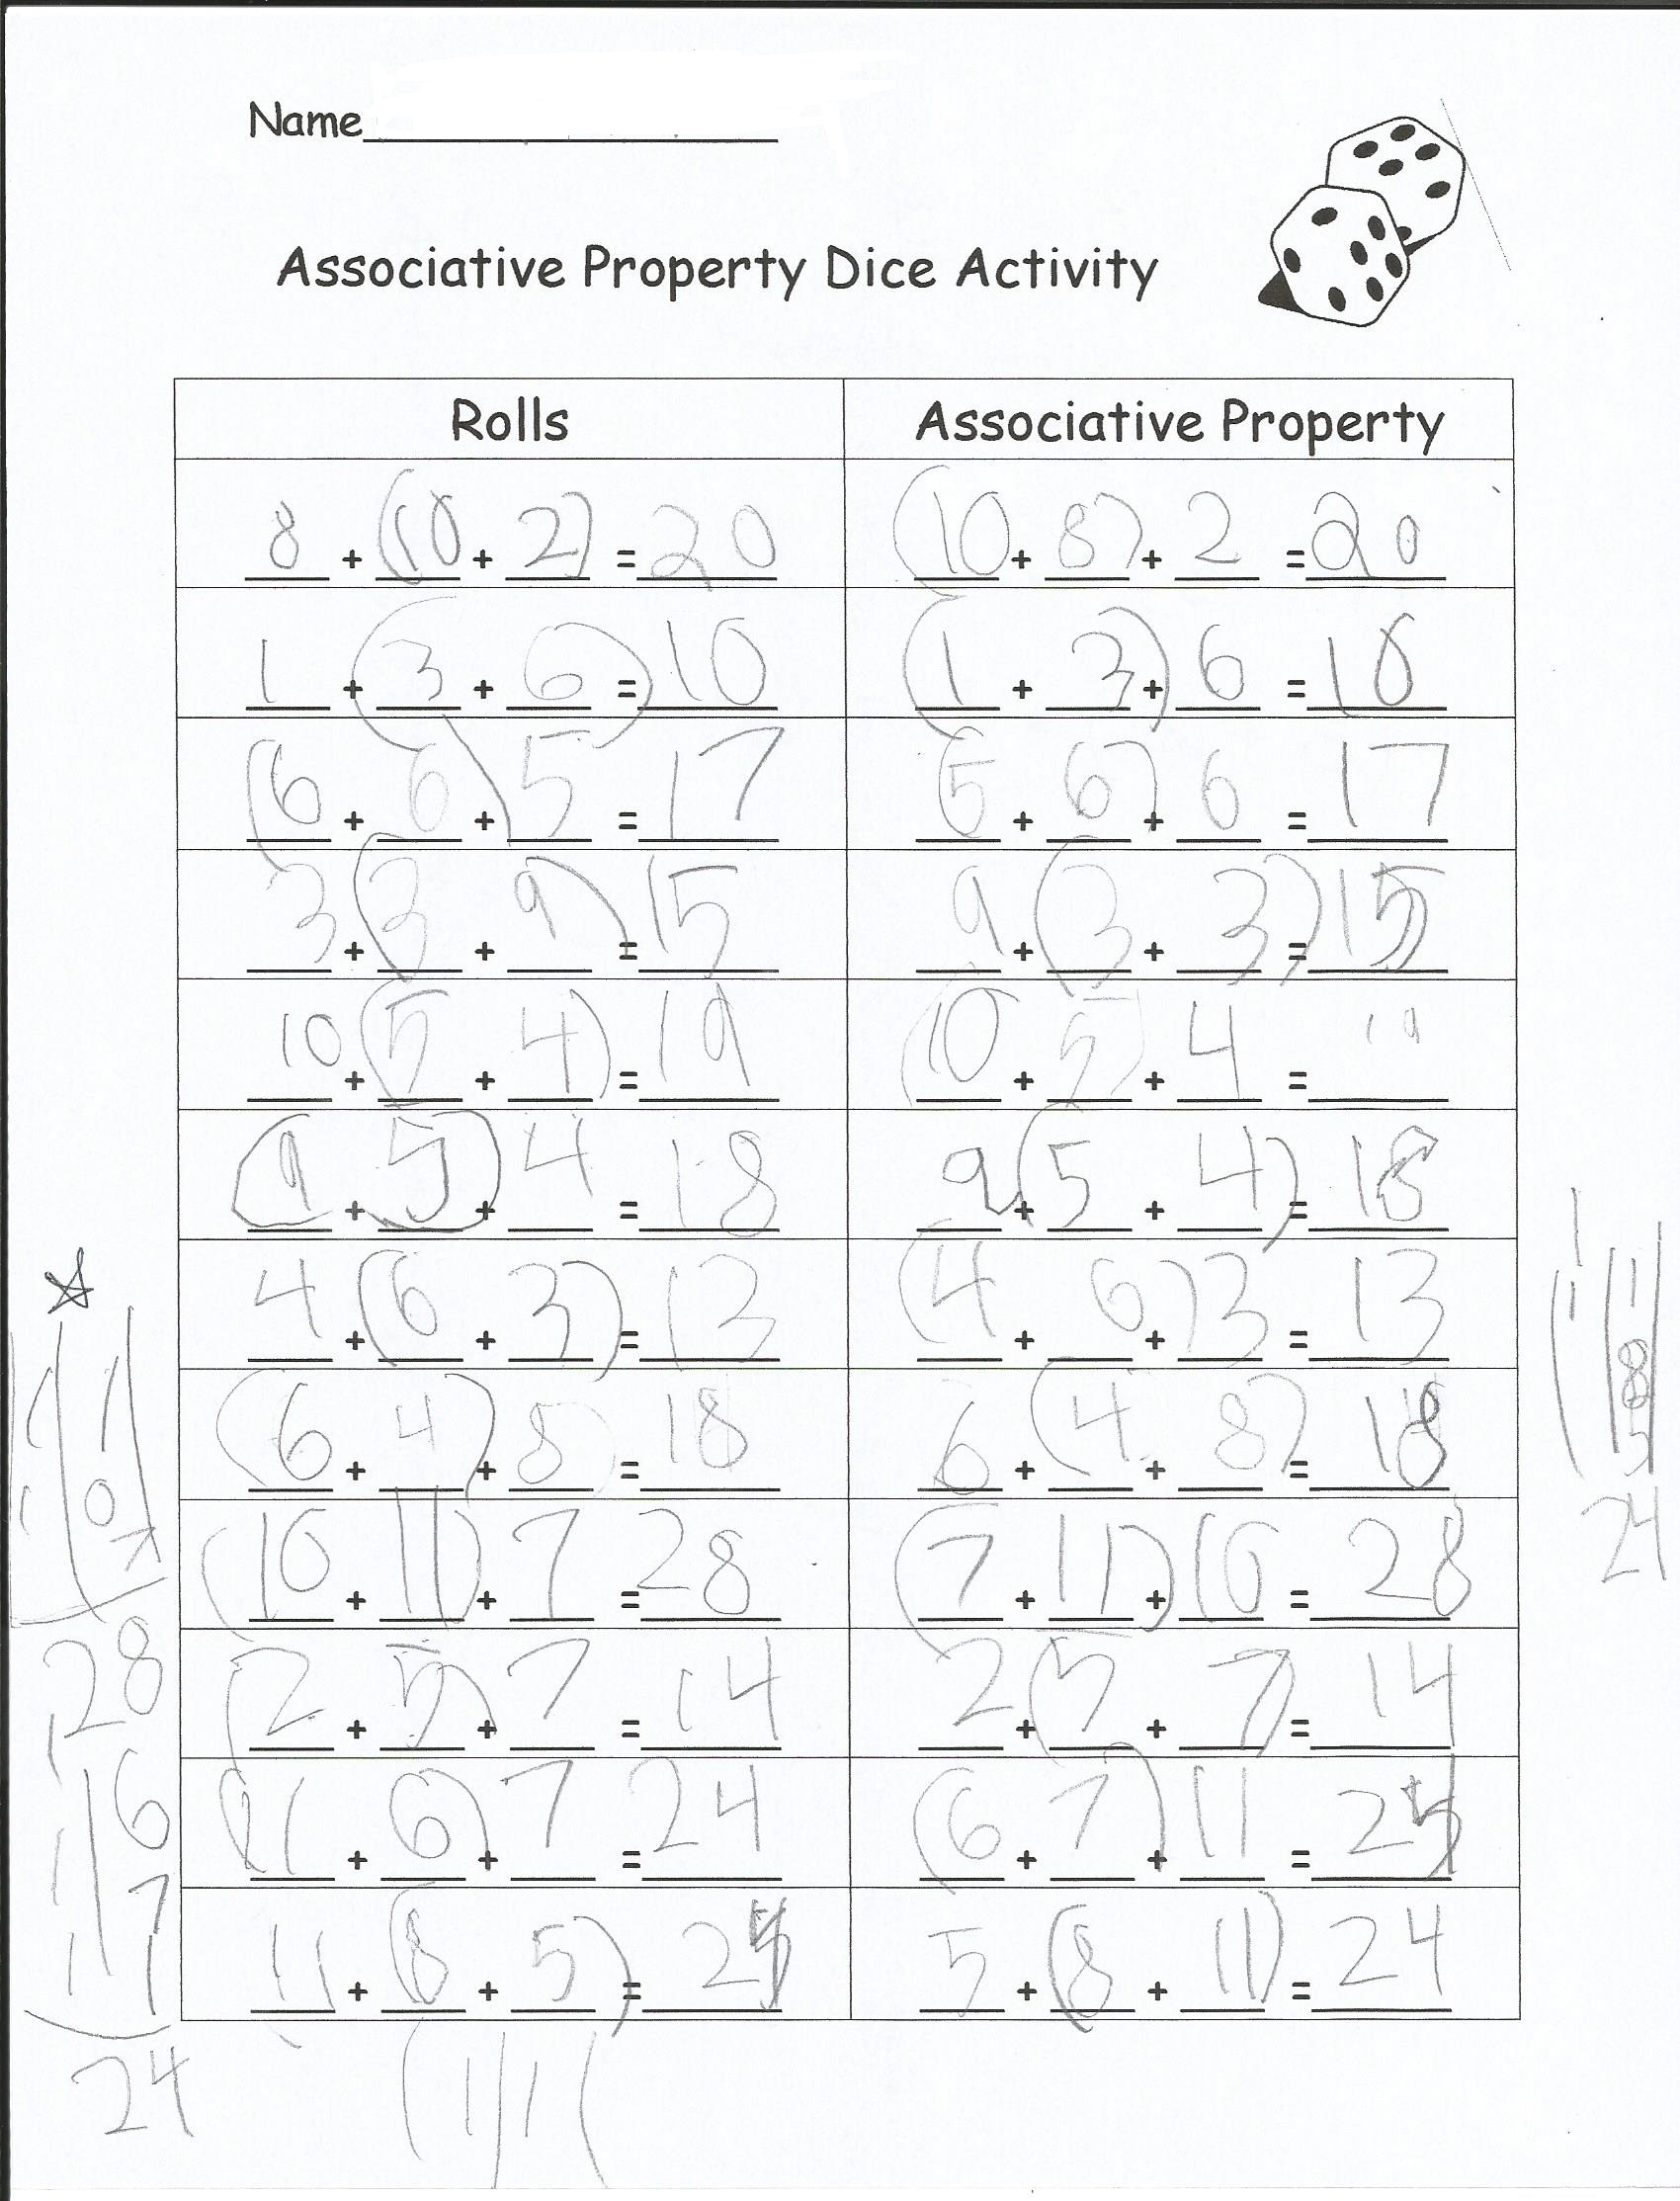 Name
Associative Property Dice Activity
Rolls Associative Property
8 + (10 + 2) = 20 (10 + 8) + 2 = 20
1 + (3 + 6) = 10 (1 + 3) + 6 = 10
(6 + 6) + 5 = 17 (5 + 6) + 6 = 17
3 + (3 + 9) = 15 9 + (3 + 3) = 15
10 + (5 + 4) = 19 (10 + 5) + 4 = 19
(9 + 5) + 4 = 18 9 + (5 + 4) = 18
4 + (6 + 3) = 13 (4 + 6) + 3 = 13
(6 + 4) + 8 = 18 6 + (4 + 8) = 18
(10 + 11) + 7 = 28 (7 + 11) + 10 = 28
(2 + 5) + 7 = 14 2 + (5 + 7) = 14
(11 + 6) + 7 = 24 (6 + 7) + 11 = 24
11 + (8 + 5) = 24 5 + (8 + 11) = 24
1
0
7
28
6
7
11
24
11
8
5
24